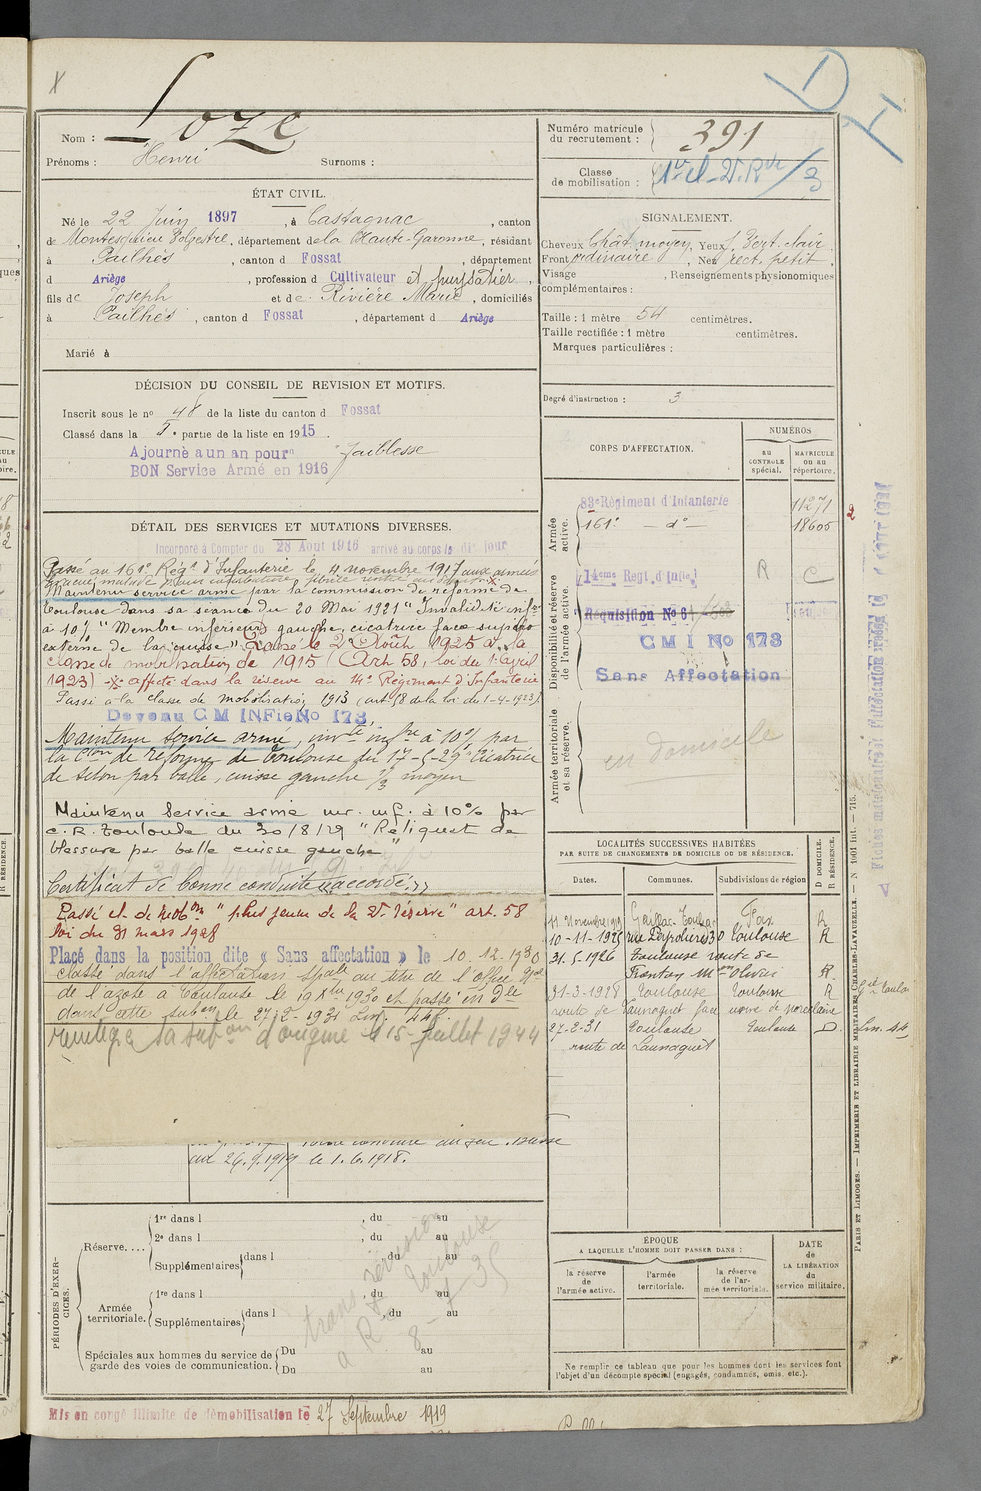 Nom : Loze
Prénoms : Henri Surnoms :
Numéro matricule du recrutement : 391
Classe de mobilisation :
ÉTAT CIVIL.
Né le 22 Juin 1897, à Castagnac, canton
de Montesquieu Volvestre, département de la Haute-Garonne, résidant
à Pailhès, canton d Fossat, département
d Ariège, profession d Cultivateur et puysatier,
fils de Joseph et de Rivière Marie, domiciliés
à Pailhès, canton d Fossat, département d Ariège
Marié à
SIGNALEMENT.
Cheveux Chât. moyen, Yeux Vert clair,
Front ordinaire, Nez rect. petit,
Visage , Renseignements physionomiques
complémentaires :
Taille : 1 mètre 54 centimètres.
Taille rectifiée : 1 mètre centimètres.
Marques particulières :
Degré d'instruction : 3
DÉCISION DU CONSEIL DE REVISION ET MOTIFS.
Inscrit sous le no 48 de la liste du canton d Fossat
Classé dans la 5e partie de la liste en 1915.
Ajourné a un an pour "faiblesse
BON Service Armé en 1916
DÉTAIL DES SERVICES ET MUTATIONS DIVERSES.
Incorporé à Compter du 28 Aout 1916 arrivé au corps le dit jour
Passé au 161e Régt d'Infanterie le 4 novembre 1917 aux armées
Maintenu service armé par la commission de réforme de
Toulouse dans sa séance du 20 Mai 1921 "Invalidité infre
à 10% "Membre inférieur gauche, cicatrice face supéro
externe de la cuisse" Passé le 2 Août 1925 à la
classe de mobilisation de 1915 (Art 58, loi du 1er avril
1923) affecté dans la réserve au 14e Régiment d'Infanterie
Passé à la classe de mobilisation 1913 (art 58 de la loi du 1-4-1923)
Devenu CM INFie No 173
Maintenu service armé, invté infre à 10% par
la Cion de réforme de Toulouse du 17-5-29 "Cicatrice
de séton par balle, cuisse gauche 1/3 moyen
Maintenu Service armé inv. inf. à 10% par
C. R. Toulouse du 30/8/29 "Reliquat de
blessure par balle cuisse gauche"
Certificat de bonne conduite "accordé."
Passé cl. de mobon "plus jeune de la 2e réserve" art. 58
loi du 31 mars 1928
Placé dans la position dite « Sans affectation » le 10.12.1930
classé dans l'affectation spale au titre de l'office Nal
de l'azote à Toulouse le 1930 et passé in Dle
dans cette subon le 27-2-1931 Lm. 44
réintégré sa subon d'origine le 15 juillet 1944
au 26.9.1919 le 1.6.1918.
CORPS D'AFFECTATION.
NUMÉROS
AU CONTROLE spécial.
MATRICULE OU AU répertoire.
Armée active.
83e Régiment d'Infanterie 11271
161e — do — 18606
Disponibilité et réserve de l'armée active.
14eme Regt d'Infie R C
Réquisition No 6
CMI No 173
Sans Affectation
Armée territoriale et sa réserve.
en domicile
LOCALITÉS SUCCESSIVES HABITÉES
PAR SUITE DE CHANGEMENTS DE DOMICILE OU DE RÉSIDENCE.
Dates. Communes. Subdivisions de région D DOMICILE. R RÉSIDENCE.
11 Novembre 1919 Foix R
10-11-1925 Toulouse R
31.5.1926 Toulouse route de
R.
31-3-1928 Toulouse Toulouse R
route de Launaguet face usine de porcelaine
27-2-31 Toulouse Toulouse D. Lm. 44
route de Launaguet
PÉRIODES D'EXERCICES.
Réserve.... 1re dans l , du au
2e dans l , du au
Supplémentaires dans l , du au
Armée territoriale. 1re dans l , du au
Supplémentaires dans l , du au
Spéciales aux hommes du service de garde des voies de communication. Du au
Du au
trans révision
à R. Toulouse
8-4-35
ÉPOQUE
A LAQUELLE L'HOMME DOIT PASSER DANS :
la réserve de l'armée active.
l'armée territoriale.
la réserve de l'armée territoriale.
DATE de LA LIBÉRATION du service militaire.
Ne remplir ce tableau que pour les hommes dont les services font
l'objet d'un décompte spécial (engagés, condamnés, omis, etc.).
Mis en congé illimité de démobilisation le 27 Septembre 1919
PARIS ET LIMOGES. — IMPRIMERIE ET LIBRAIRIE MILITAIRES CHARLES-LAVAUZELLE. — N° 1901 int. — 715.